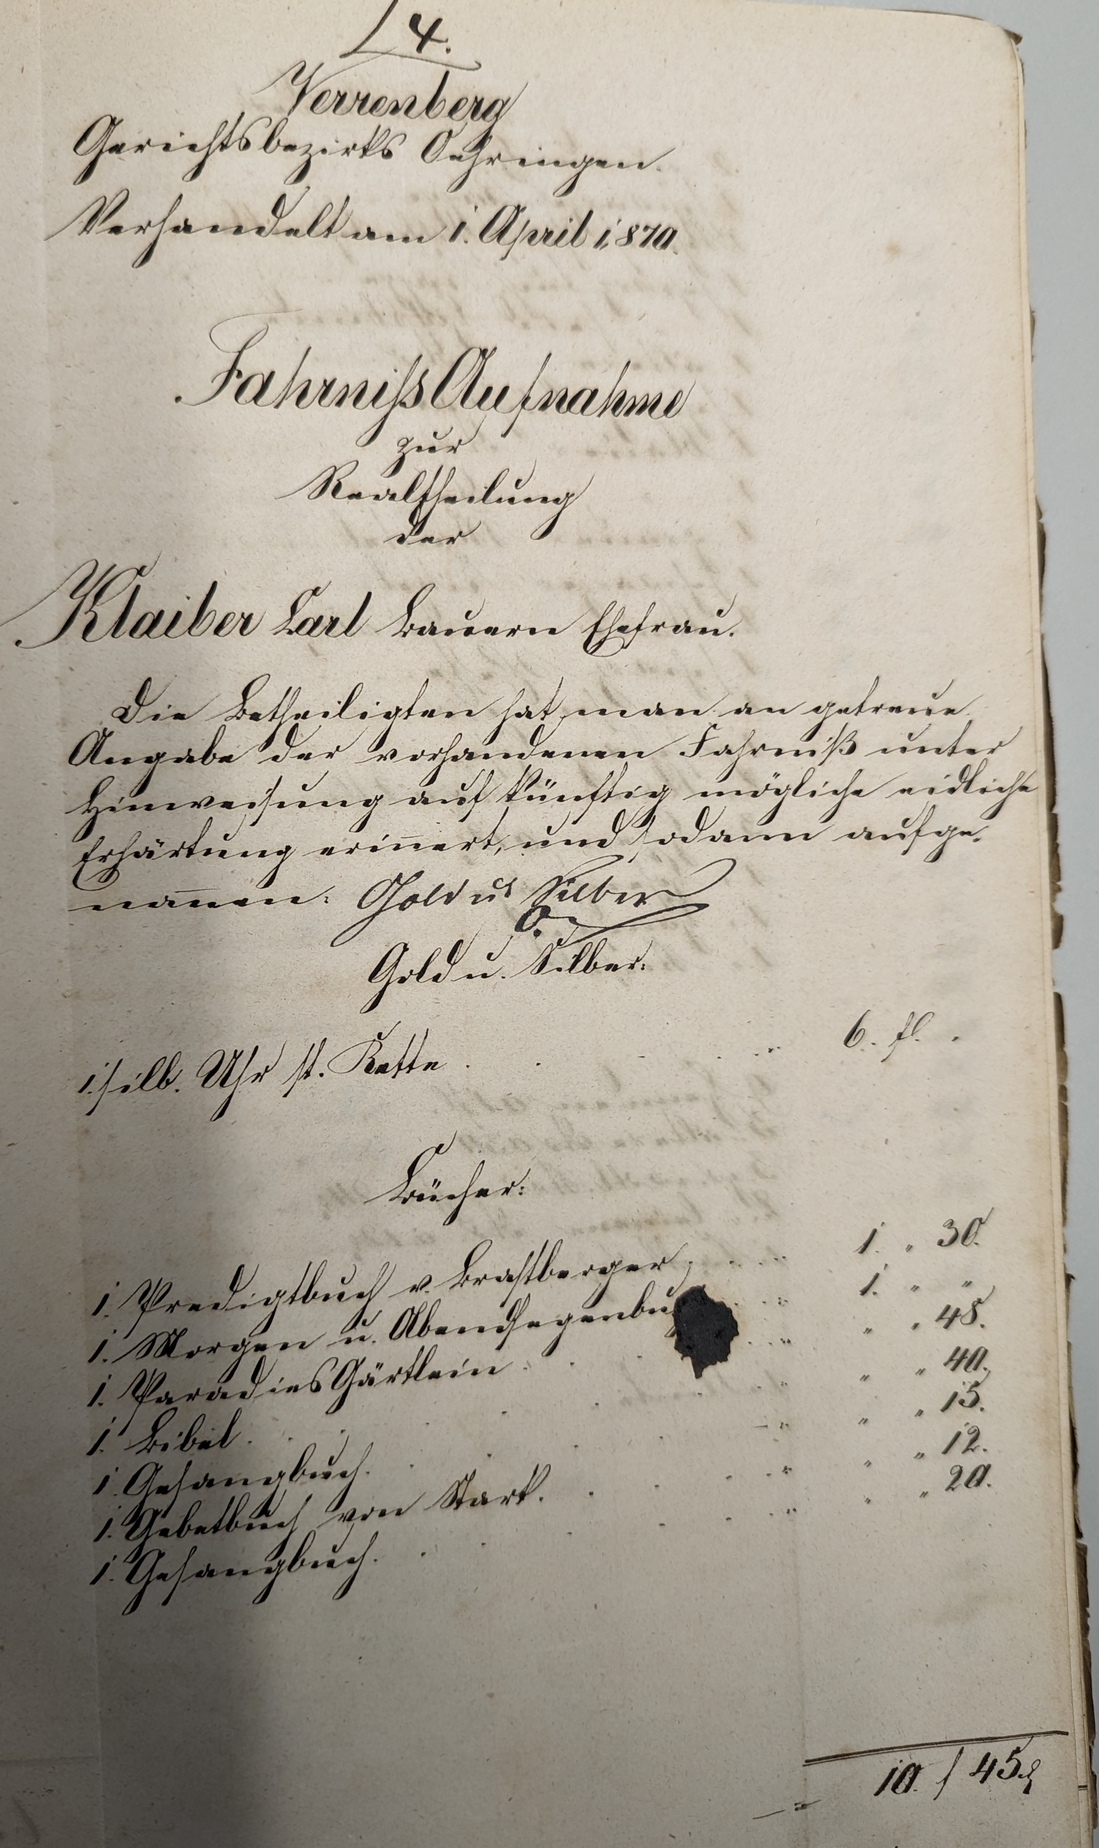 L 4.
Verrenberg
Gerichtsbezirks Oehringen.
Verhandelt am 1. April 1870.
Fahrniß Aufnahme
zur
Realtheilung
der
Klaiber Carl Bauern Ehefrau.
Die Betheiligten hat man an getreue
Angabe der vorhandenen Fahrniß unter
Hinweisung auf künftig mögliche eidliche
Erhärtung erinnert, und sodann aufge-
nom̄en: Gold u. Silber
0.
Gold u. Silber:
1 silb. Uhr st. Kette . . . 6. fl. .
Bücher:
1. Predigtbuch v. Brastberger, . . . 1. " 30.
1. Morgen u. Abendsegenbu . . 1. " "
1. Paradies Gärtlein . . . " " 48.
1. Bibel . . . " " 40.
1 Gesangbuch. . . " " 15.
1. Gebetbuch von Stark. . . . " " 12.
1. Gesangbuch. . . . " " 20.
10. f 45